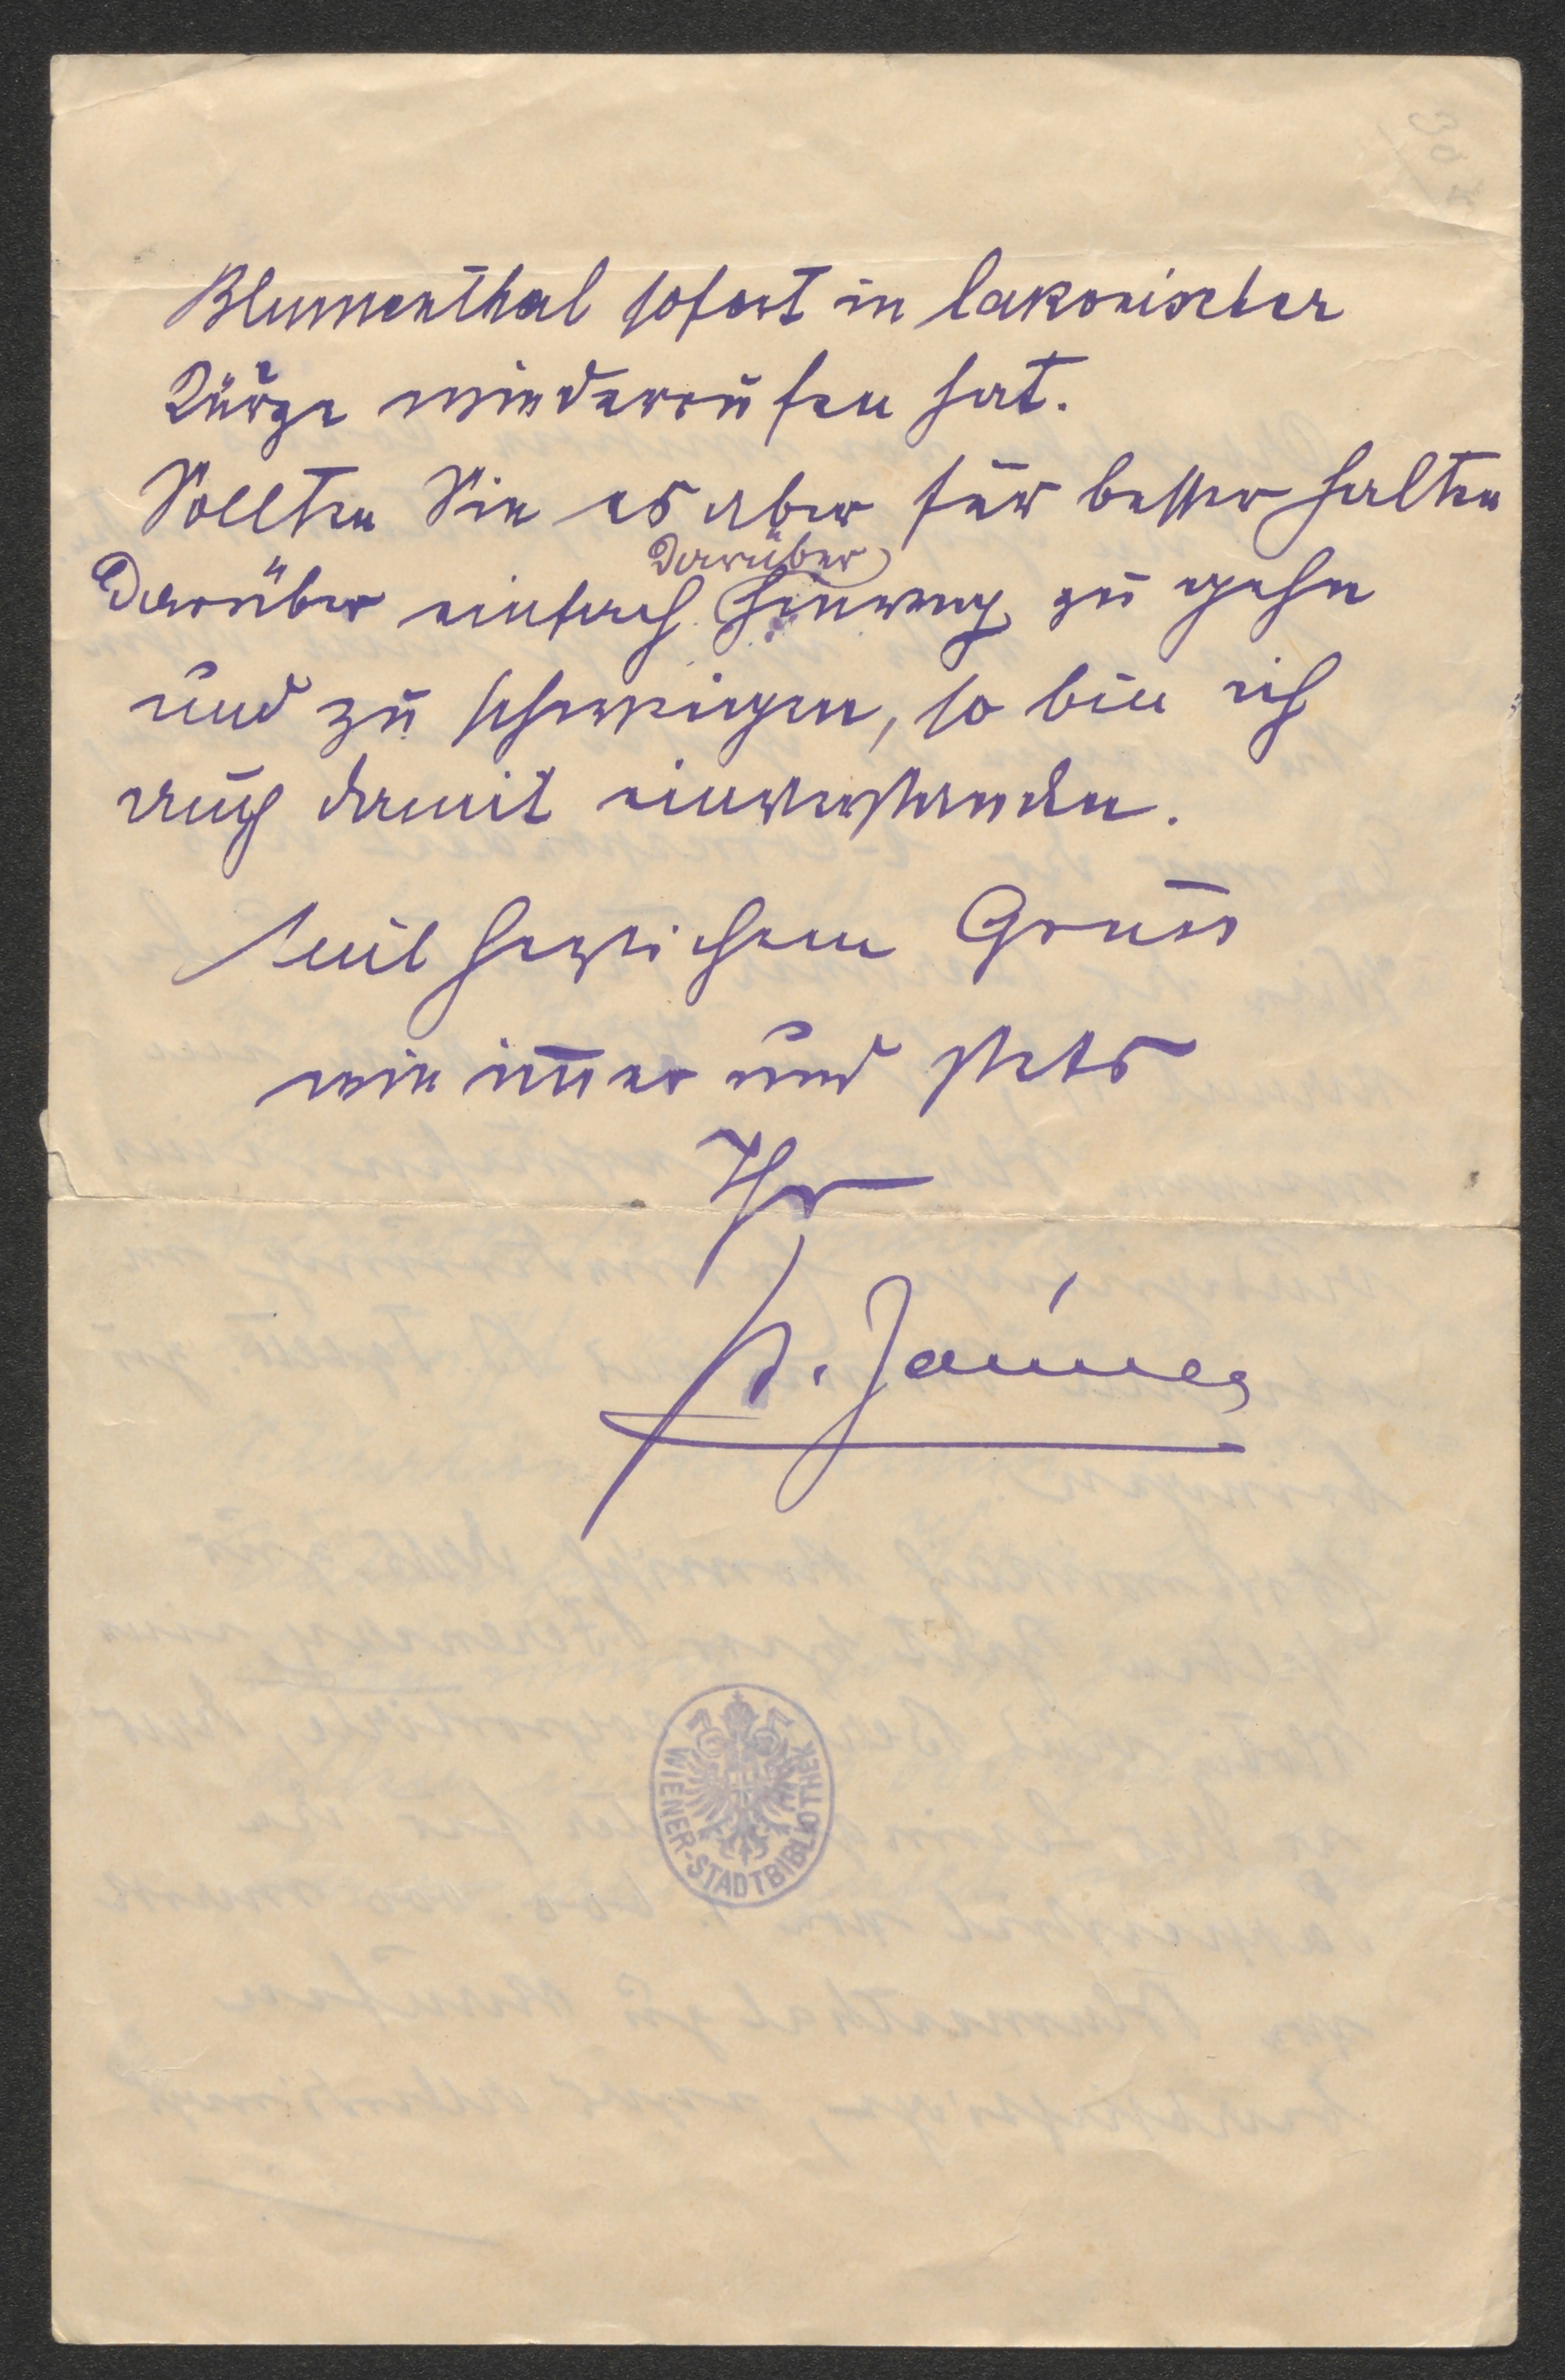 Blumenthal sofort in lakonischer
Kürze wiederrufen hat.
Sollten Sie es aber für besser halten
darüber
darüber einfach hinweg zu gehn
und zu schweigen, so bin ich
auch damit einverstanden.
Mit herzlichem Gruss
wie im̄er und stets
Ihr
WIENER-STADTBIBLIOTHEK